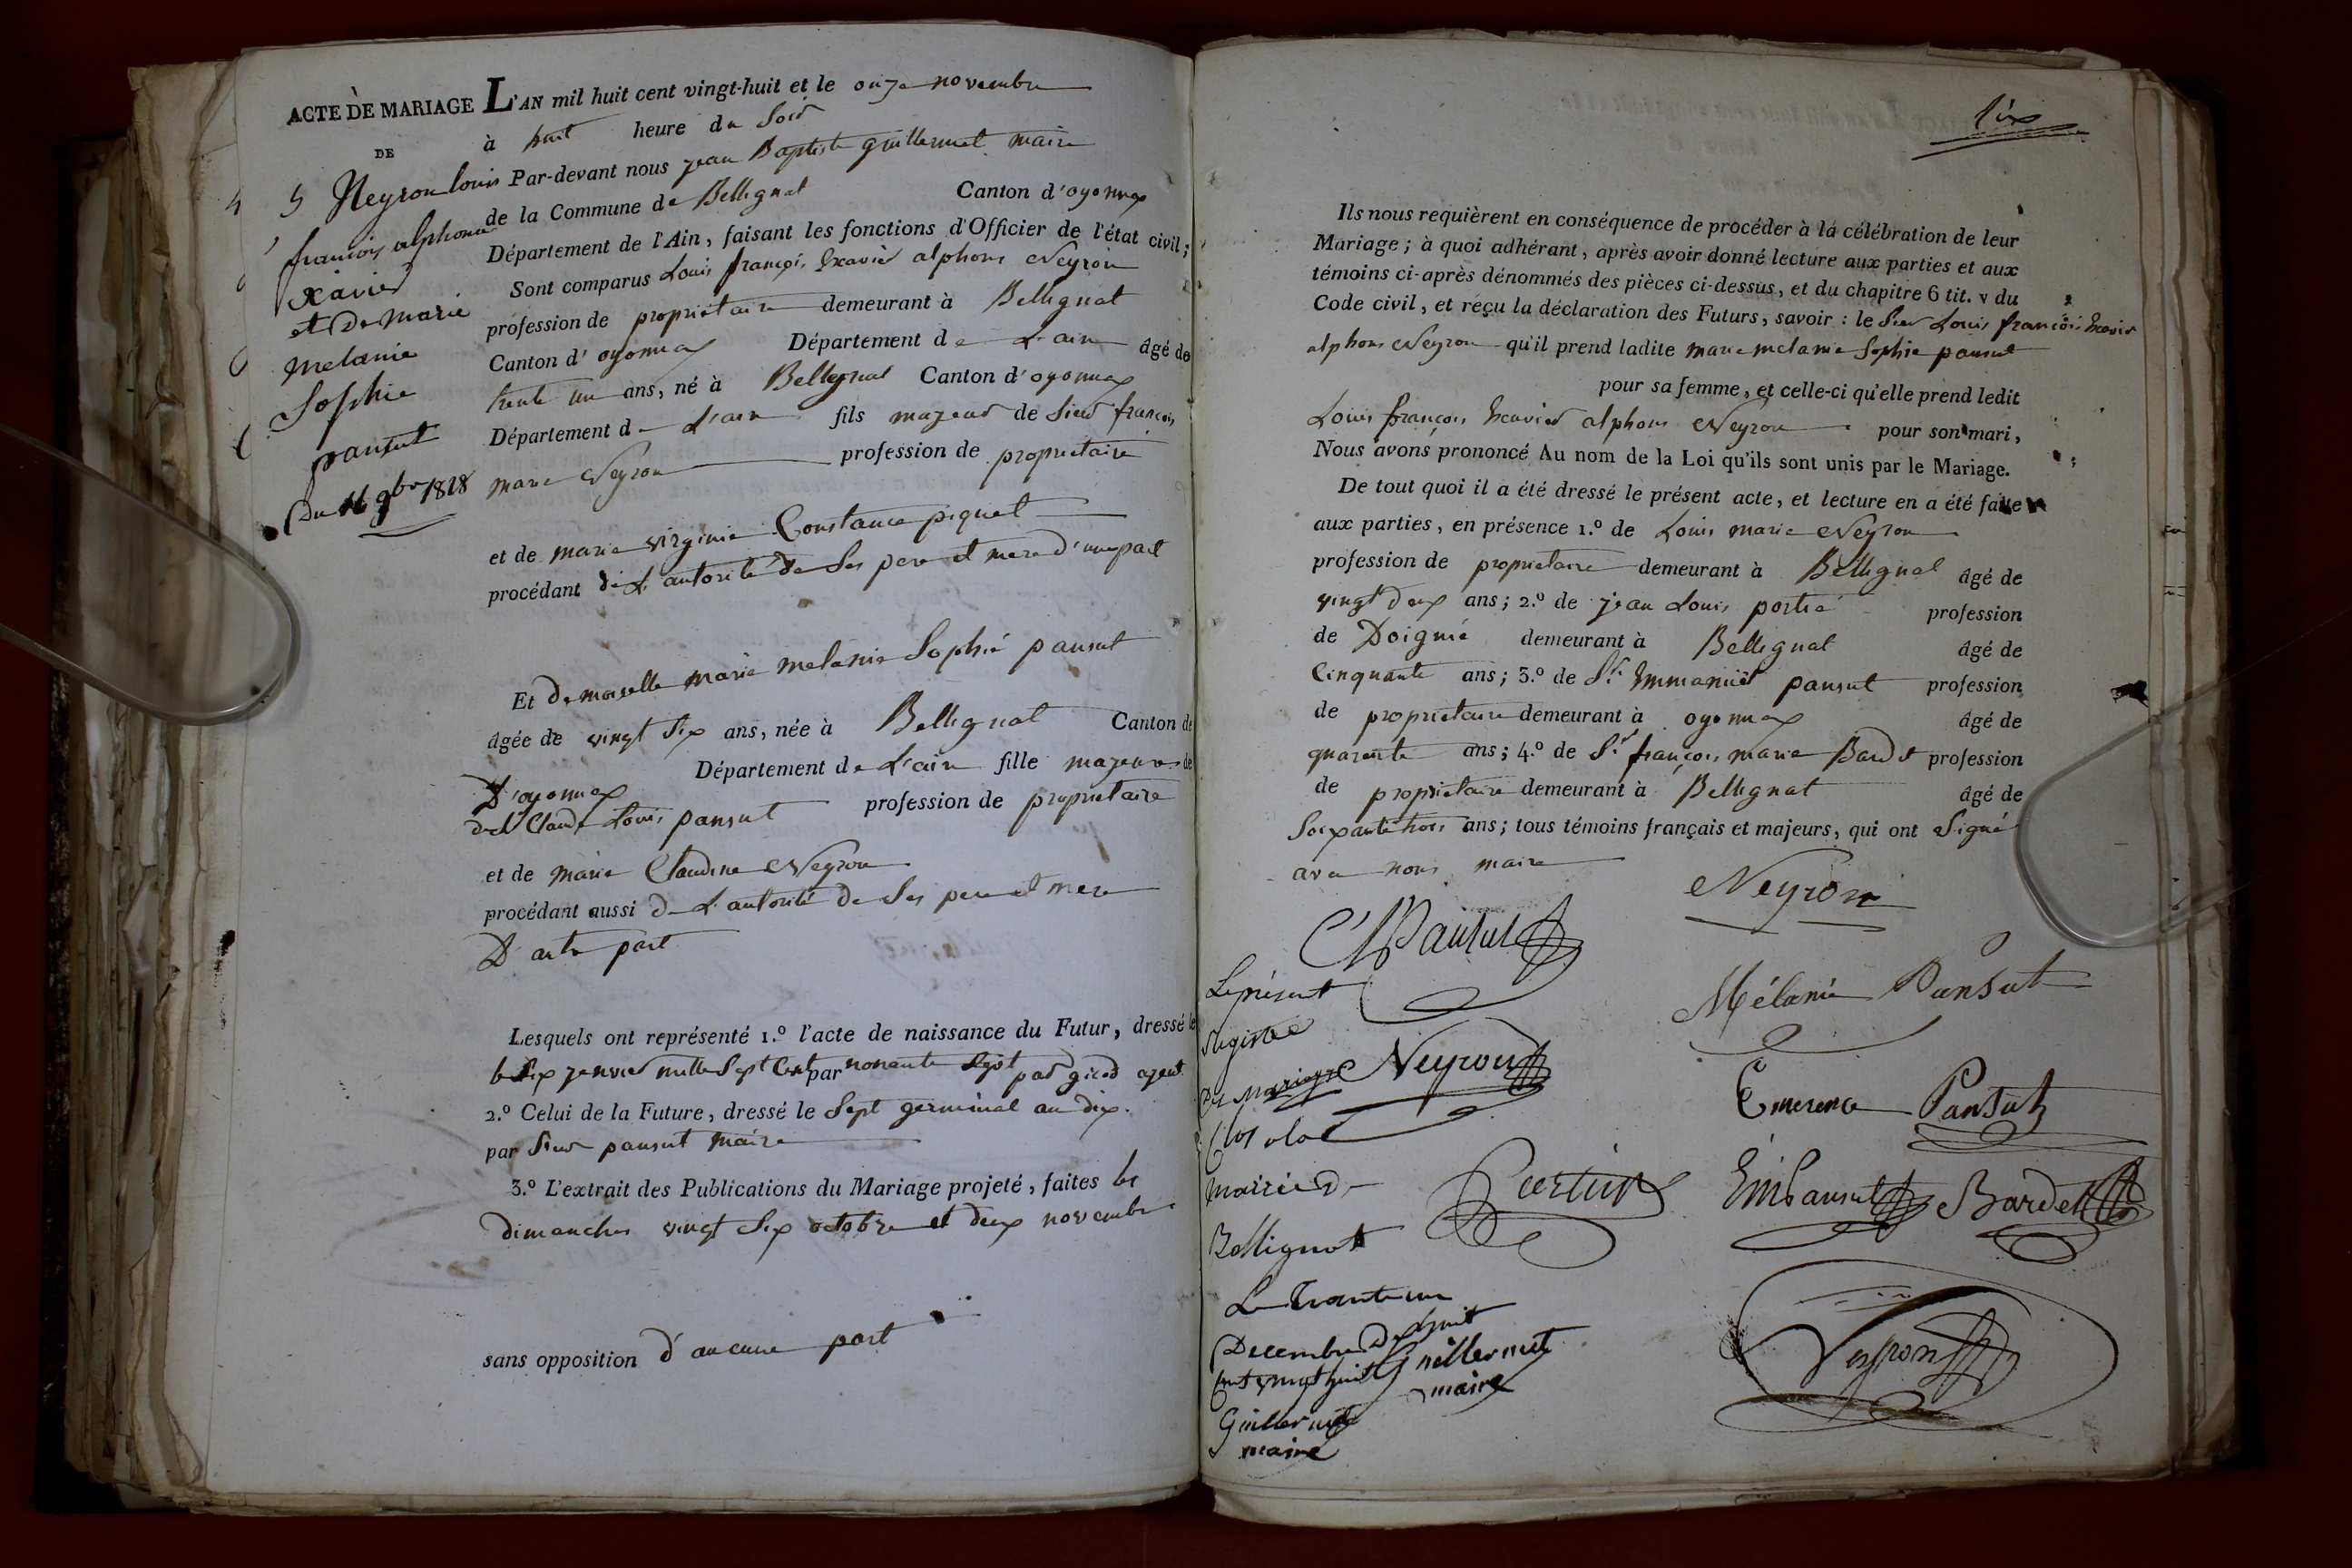 ACTE DE MARIAGE
DE
5 Neyron louis
francois alphonse
Xavier
et de marie
melanie
Sophie
pansut
Du 11 9bre 1828
L'AN mil huit cent vingt-huit et le onze novembre
à huit heure du Soir
Par-devant nous jean Baptiste guillermet maire
de la Commune de Bellignat Canton d'oyonnax
Département de l'Ain, faisant les fonctions d'Officier de l'état civil;
Sont comparus Louis françois Xavier alphons Neyron
profession de propriétaire demeurant à Bellignat
Canton d'oyonnax Département de L'ain âgé de
trente un ans, né à Bellignat Canton d'oyonnax
Département de L'ain fils majeur de Sieur françois
marie Neyron profession de propriétaire
et de marie virginie Constance piquet
procédant de L'autorité de Ses pere et mere d'une part
Et demoiselle marie melanie Sophie pansut
âgée de vingt Six ans, née à Bellignat Canton de
D'oyonnax Département de L'ain fille majeure de
de Sr Claude Louis pansut profession de propriétaire
et de marie Claudine Neyron
procédant aussi de L'autorité de Ses pere et mere
D'autre part
Lesquels ont représenté 1.º l'acte de naissance du Futur, dressé le
le Six janvier mille Sept Cent par nonante Sept par girod agent
2.º Celui de la Future, dressé le Sept germinal an dix
par Sieur pansut maire
3.º L'extrait des Publications du Mariage projeté, faites les
dimanches vingt Six octobre et deux novembre
sans opposition d'aucune part
Six
Ils nous requièrent en conséquence de procéder à la célébration de leur
Mariage; à quoi adhérant, après avoir donné lecture aux parties et aux
témoins ci-après dénommés des pièces ci-dessus, et du chapitre 6 tit. v du
Code civil, et reçu la déclaration des Futurs, savoir : le Sieur Louis françois Xavier
alphons Neyron qu'il prend ladite marie melanie Sophie pansut
pour sa femme, et celle-ci qu'elle prend ledit
Louis françois Xavier alphons Neyron pour son mari,
Nous avons prononcé Au nom de la Loi qu'ils sont unis par le Mariage.
De tout quoi il a été dressé le présent acte, et lecture en a été faite
aux parties, en présence 1.º de Louis marie Neyron
profession de propriétaire demeurant à Bellignat âgé de
vingt deux ans; 2.º de jean Louis portié profession
de Doignié demeurant à Bellignat âgé de
Cinquante ans; 3.º de Sr Emmanuël pansut profession
de propriétaire demeurant à oyonnax âgé de
quarante ans; 4.º de Sr françois marie Bardet profession
de propriétaire demeurant à Bellignat âgé de
Soixante trois ans; tous témoins français et majeurs, qui ont Signé
avec nous maire
Neyron
Pansut
Mélanie Pansut
Neyron
Emerence Pansut
EmPansut Bardet
Neyron
Le présent
Registre
de Mariage
Clos a la
mairie de
Bellignat
Le Trante un
Decembre dix huit
cent vingt huit
Guillermet
maire
Guillermet
maire